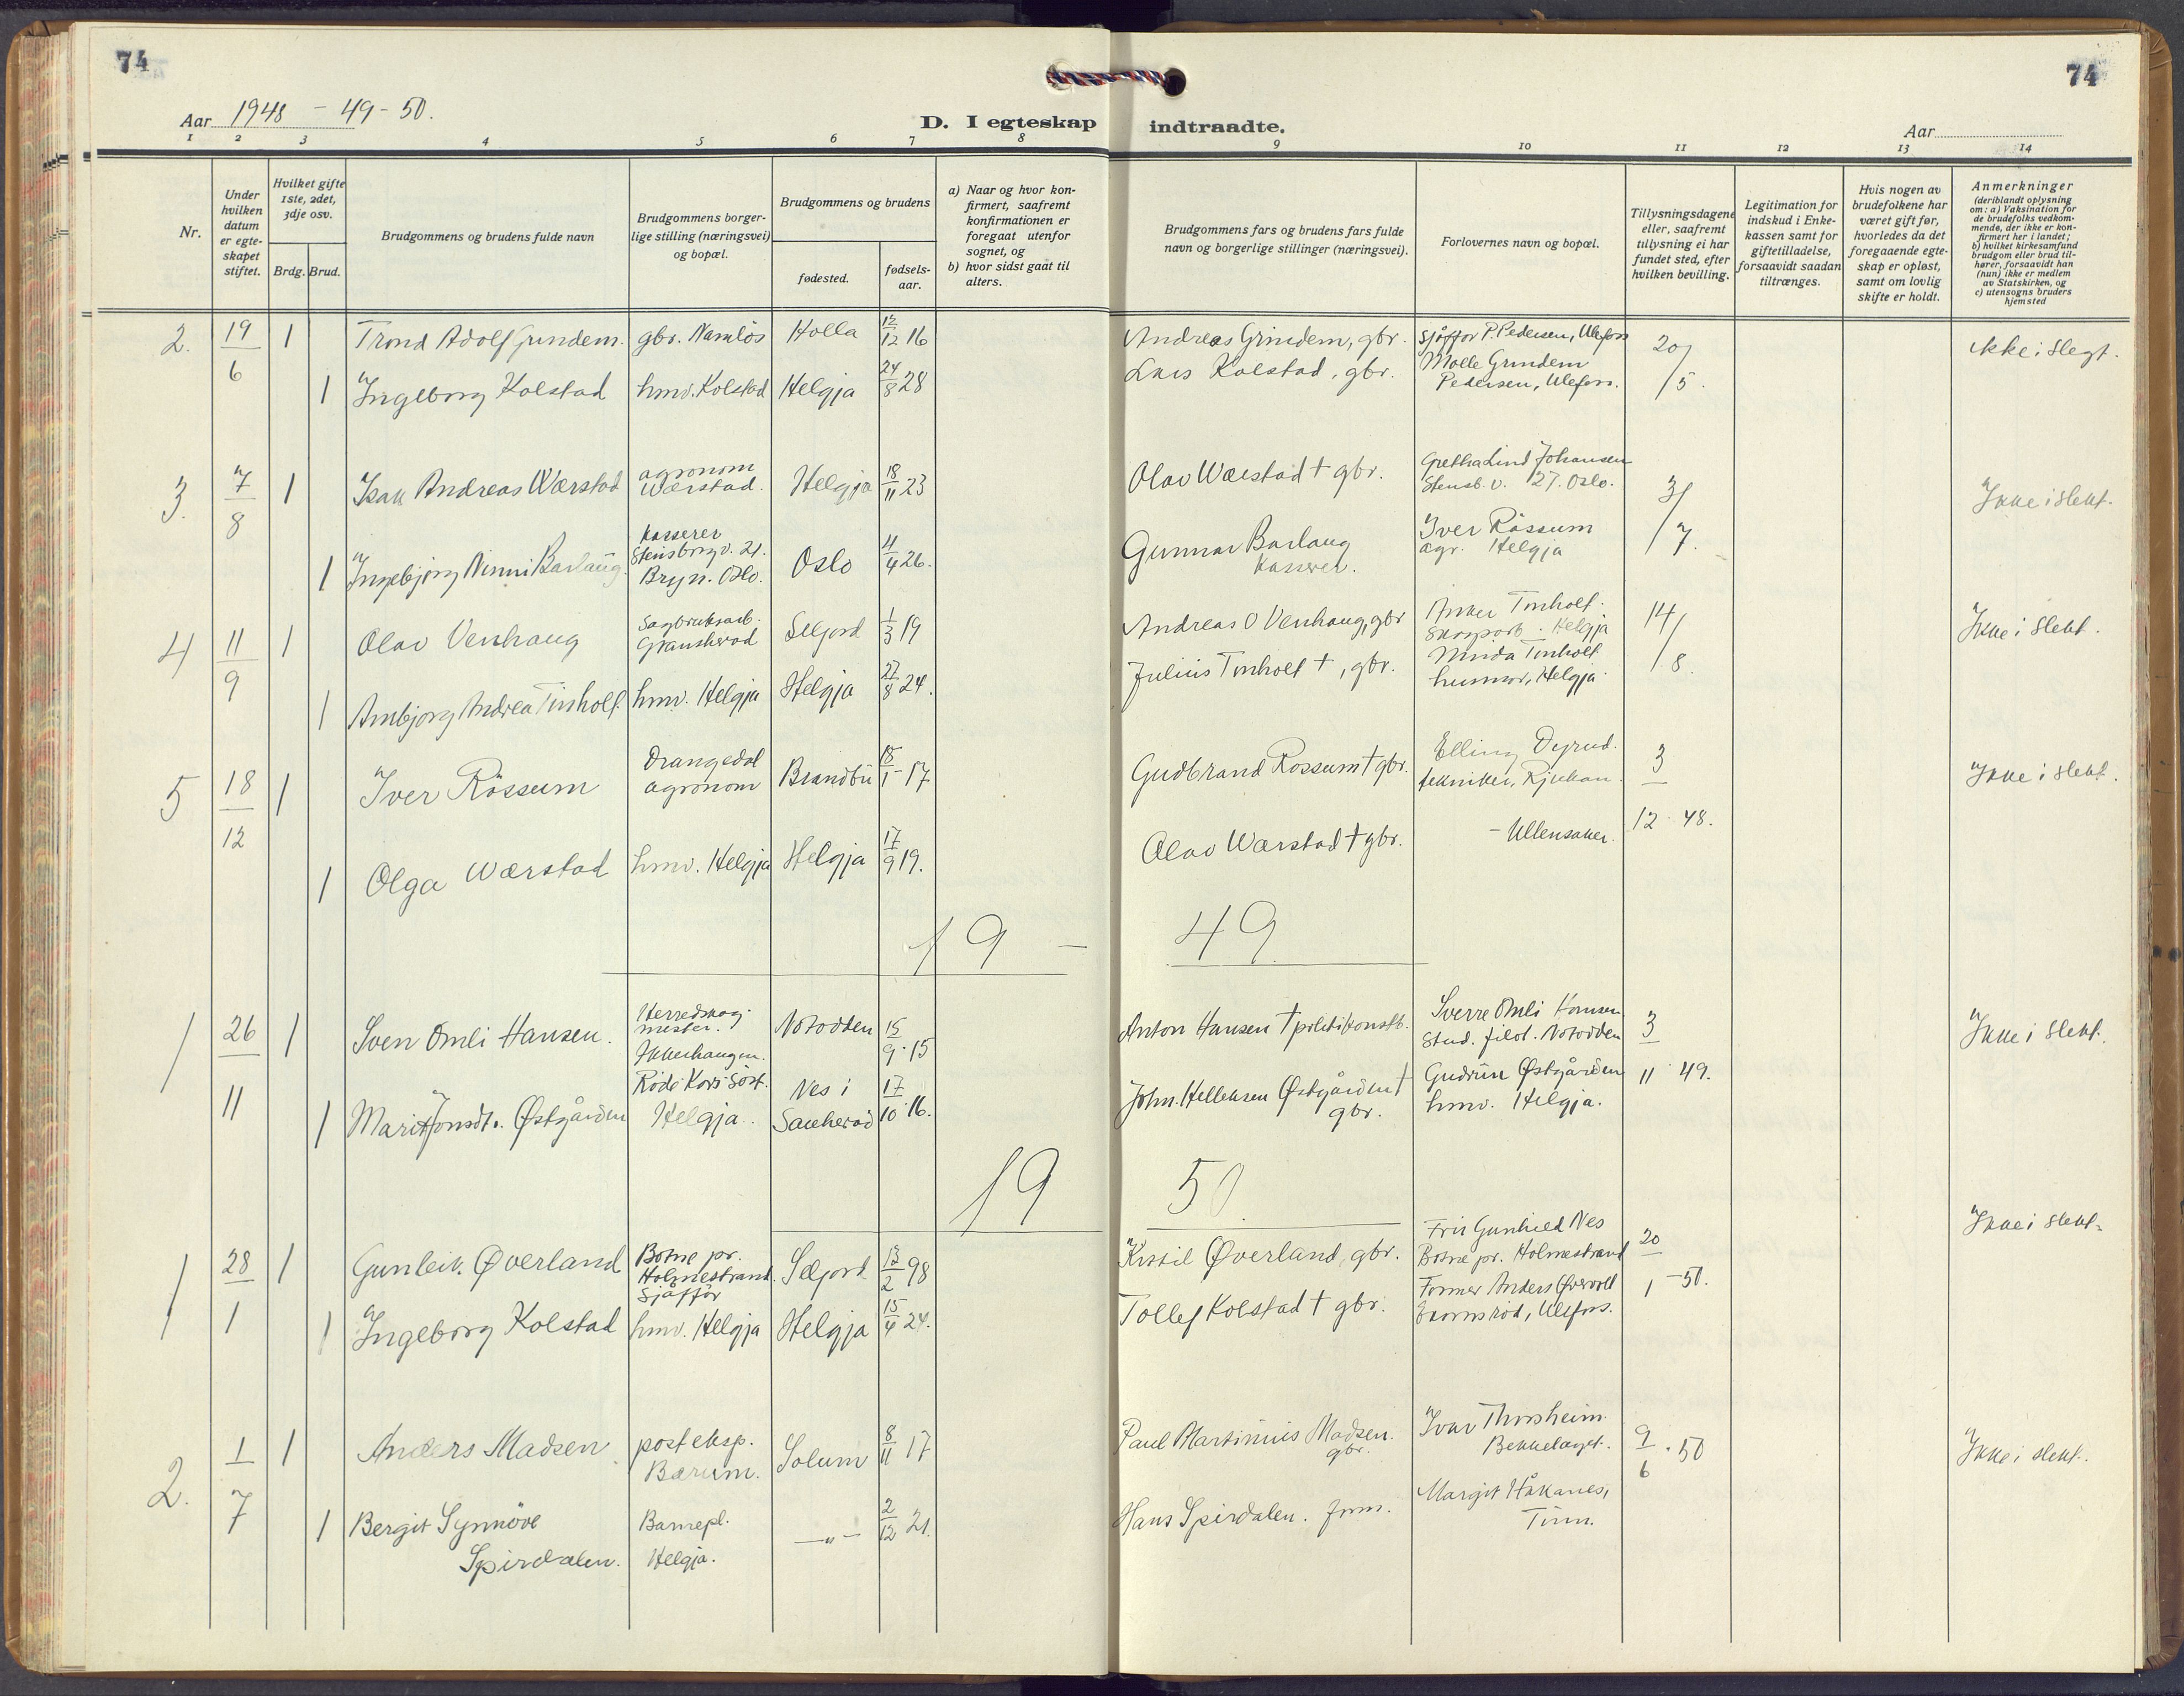 74
74
Aar 1948 - 49 - 50.
D. I egteskap indtraadte.
Aar
1 2 3 4 5 6 7 8 9 10 11 12 13 14
Nr.
Under hvilken datum er egteskapet stiftet.
Hvilket gifte 1ste, 2det, 3dje osv.
Brdg. Brud.
Brudgommens og brudens fulde navn
Brudgommens borgerlige stilling (næringsvei) og bopæl.
Brudgommens og brudens
fødested.
fødselsaar.
a) Naar og hvor konfirmert, saafremt konfirmationen er foregaat utenfor sognet, og
b) hvor sidst gaat til alters.
Brudgommens fars og brudens fars fulde navn og borgerlige stillinger (næringsvei).
Forlovernes navn og bopæl.
Tillysningsdagene eller, saafremt tillysning ei har fundet sted, efter hvilken bevilling.
Legitimation for indskud i Enkekassen samt for giftetilladelse, forsaavidt saadan tiltrænges.
Hvis nogen av brudefolkene har været gift før, hvorledes da det foregaaende egteskap er opløst, samt om lovlig skifte er holdt.
Anmerkninger (deriblandt oplysning om: a) Vaksination for de brudefolks vedkommende, der ikke er konfirmert her i landet; b) hvilket kirkesamfund brudgom eller brud tilhører, forsaavidt han (hun) ikke er medlem av Statskirken, og c) utensogns bruders hjemsted
2. 19/6 1 Trond Adolf Grindem. gbr. Namløs Holla 12/12 16 Andreas Grindem, gbr. Sjåffør P. Pedersen, Ulefoss 20/5. Ikke i slegt.
1 Ingeborg Kolstad hmv. Kolstad Helgja 24/8 28 Lars Kolstad, gbr. Molle Grindem
Pedersen, Ulefoss.
3. 7/8 1 Isak Andreas Wærstad agronom
Wærstad. Helgja 18/11 23 Olav Wærstad † gbr. Gretha Lind Johansen
Stensb. v. 27. Oslo. 3/7. Ikke i slekt.
1 Ingebjørg Ninni Barlaug. Kasserer
Stensborgv. 21.
Bryn. Oslo. Oslo 4/4 26. Gunnar Barlaug
Kasserer. Iver Røssum
agr. Helgja
4 11/9 1 Olav Venhaug Sagbruksarb.
Gransherad Seljord 1/3 19 Andreas O Venhaug, gbr Anker Tinholt.
Helgja 14/8. Ikke i slekt.
1 Ambjørg Andrea Tinholt. hmv. Helgja Helgja 27/8 24. Julius Tinholt †, gbr. Minda Tinholt
husmor, Helgja.
5 18/12 1 Iver Røssum Drangedal
agronom Brandbu 18/1 - 17 Gudbrand Rossum † gbr. Elling Dyrud.
tekniker, Rjukan. 3/12 48. Ikke i slekt.
1 Olga Wærstad hmv. Helgja Helgja 17/9 19. Olav Wærstad † gbr. - Ullensaker.
19 - 49
1 26/11 1 Sven Omli Hansen. Herredskog-
mester.
Notodden 15/9 - 15 Anton Hansen † politikonstb. Sverre Omli Hansen
stud. filol. Notodden 3/11 49. Ikke i slekt.
1 Marit Jonsdt. Østgården Røde-Kors-Søst.
Helgja. Nes i
Sauherad 17/10 - 16. John. Helleksen Østgården †
gbr. Gudrun Østgården
hmv. Helgja.
19 50
1 28/1 1 Gunleik. Øverland Botne pr.
Holmestrand.
Sjåffør Seljord 13/2 98 Kittil Øverland, gbr. Fru Gunhild Nes
Botne pr. Holmestrand 20/1 - 50. Ikke i slekt.
1 Ingeborg Kolstad hmv. Helgja Helgja 15/4 24. Tollef Kolstad † gbr. Former Anders Øvervoll
Ulefoss.
2. 1/7 1 Anders Madsen post eksp.
Bærum. Solum 8/11 17 Paul Martinius Madsen.
gbr. Ivar Thorsheim
Bekkelaget. 9/6 . 50 Ikke i slekt.
1 Bergit Synnöve
Spirdalen. Barnepl.
Helgja. — " — 2/12 21. Hans Spirdalen. Margit Håkanes,
Tinn.